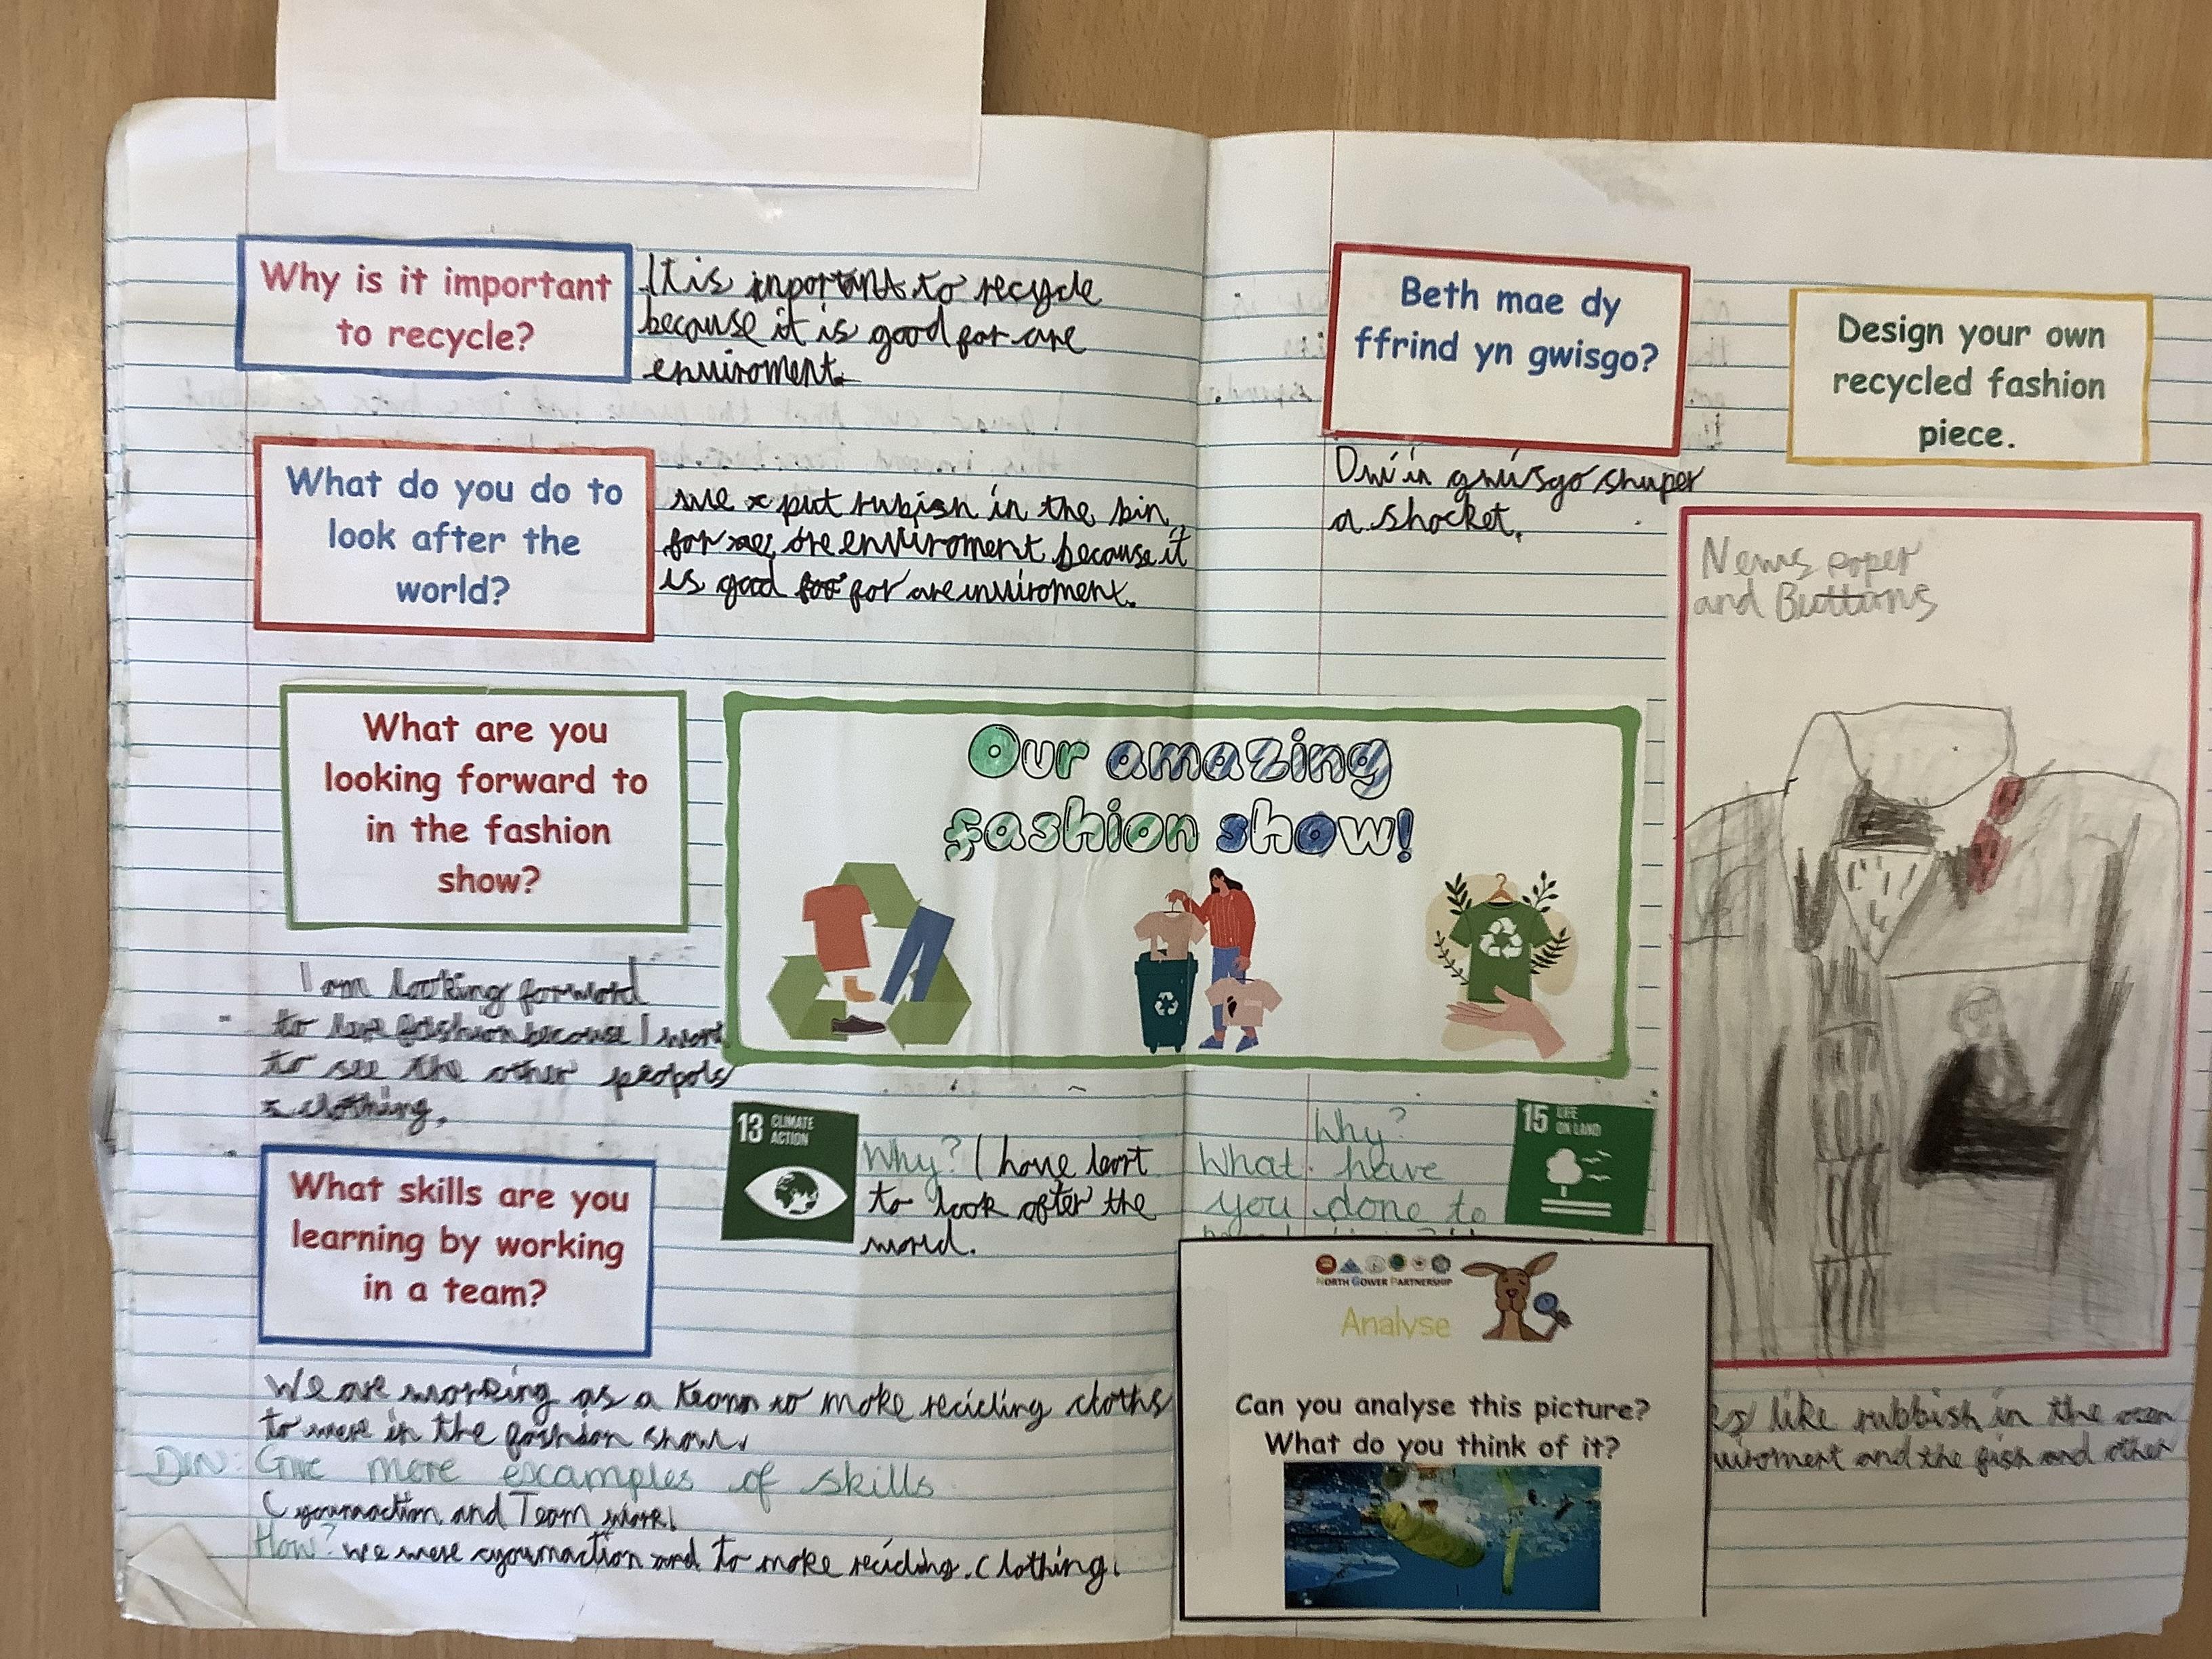 Why is it important
to recycle?
It is inportant to recycle
because it is good for are
enviroment.
What do you do to
look after the
world?
we put rubish in the bin
for are enviroment because it
is good for are inviroment.
What are you
looking forward to
in the fashion
show?
I am looking forword
to fashion because I wont
to see the other
clothing.
What skills are you
learning by working
in a team?
We are working as a team to make recicling cloths
to were in the fashion show.
DIN: Give more examples of skills
Cyoumaction and Team work.
How? we were cyoumaction and to make recicling. Clothing.
Our amazing
fashion show!
13 CLIMATE
ACTION
Why? I have leart
to look after the
world.
Beth mae dy
ffrind yn gwisgo?
Dwi'n gwisgo shuper
a shocket.
Design your own
recycled fashion
piece.
News poper
and Buttons
15 LIFE
ON LAND
Why?
What have
you done to
NORTH GOWER PARTNERSHIP
Analyse
Can you analyse this picture?
What do you think of it?
like rubbish in the
and the fish and other